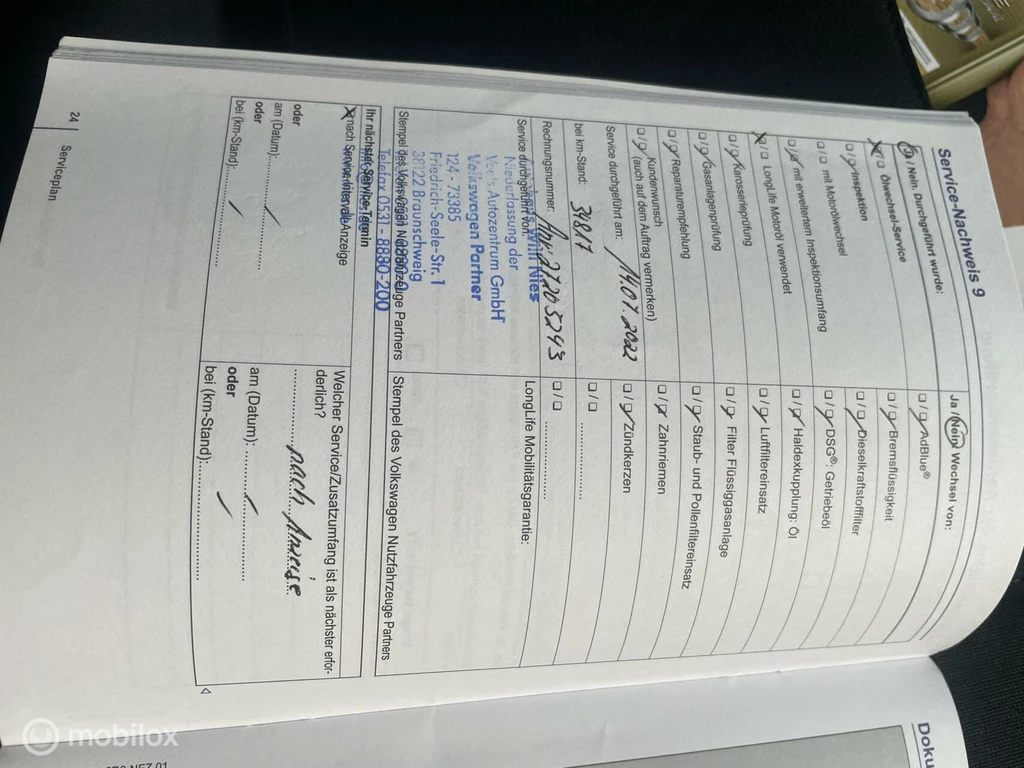 Service-Nachweis 9
Ja / Nein. Durchgeführt wurde:
Ölwechsel-Service
Inspektion
mit Motorölwechsel
mit erweitertem Inspektionsumfang
LongLife Motoröl verwendet
Karosserieprüfung
Gasanlagenprüfung
Reparaturempfehlung
Kundenwunsch
(auch auf dem Auftrag vermerken)
Service durchgeführt am: 14.07.2022
bei km-Stand: 34817
Rechnungsnummer:
Service durchgeführt von:
Niederlassung der
Autozentrum GmbH
Volkswagen Partner
124 - 73385
Friedrich-Seele-Str. 1
38122 Braunschweig
Telefax 0531 - 8880-200
Stempel des Volkswagen Nutzfahrzeuge Partners
Ja / Nein Wechsel von:
AdBlue®
Bremsflüssigkeit
Dieselkraftstofffilter
DSG®: Getriebeöl
Haldexkupplung: Öl
Luftfiltereinsatz
Filter Flüssiggasanlage
Staub- und Pollenfiltereinsatz
Zahnriemen
Zündkerzen
LongLife Mobilitätsgarantie:
Stempel des Volkswagen Nutzfahrzeuge Partners
Ihr nächster Service-Termin
nach Service-Intervall-Anzeige
oder
am (Datum):
oder
bei (km-Stand):
Welcher Service/Zusatzumfang ist als nächster erfor-
derlich?
nach
am (Datum):
oder
bei (km-Stand):
24 Serviceplan
Doku
mobilox